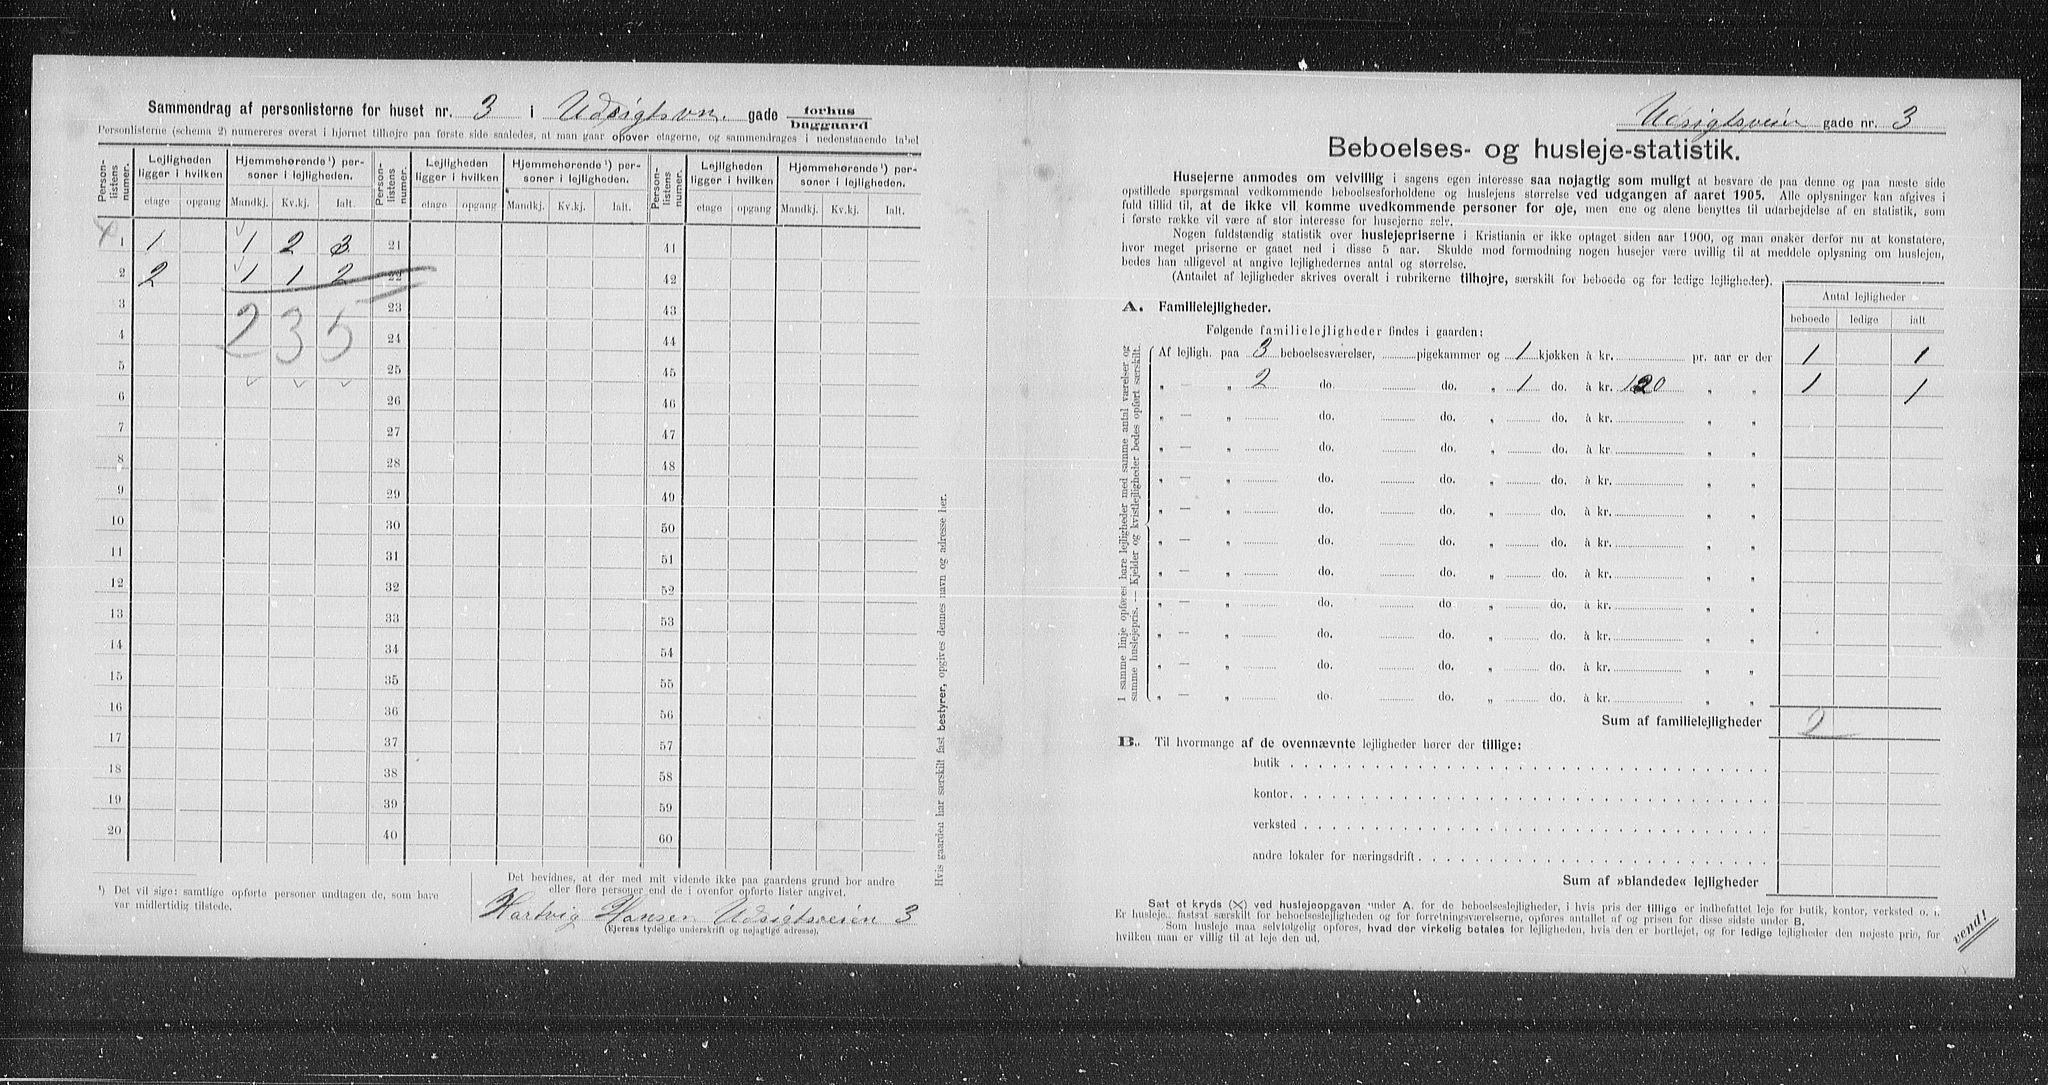 Sammendrag af personlisterne for huset nr. 3 i Udsigtsvn. gade forhus baggaard
Personlisterne (schema 2) numereres øverst i hjørnet tilhøjre paa første side saaledes, at man gaar opover etagerne, og sammendrages i nedenstaaende tabel
Personlistens numer. Lejligheden ligger i hvilken Hjemmehørende ¹) personer i lejligheden. Personlistens numer. Lejligheden ligger i hvilken Hjemmehørende ¹) personer i lejligheden. Personlistens numer. Lejligheden ligger i hvilken Hjemmehørende ¹) personer i lejligheden.
etage opgang Mandkj. Kv.kj. Ialt. etage opgang Mandkj. Kv.kj. Ialt. etage opgang Mandkj. Kv.kj. Ialt.
1 1 1 2 3 21 41
2 2 1 1 2 22 42
3 2 3 5 23 43
4 24 44
5 25 45
6 26 46
7 27 47
8 28 48
9 29 49
10 30 50
11 31 51
12 32 52
13 33 53
14 34 54
15 35 55
16 36 56
17 37 57
18 38 58
19 39 59
20 40 60
¹) Det vil sige: samtlige opførte personer undtagen de, som bare
var midlertidig tilstede.
Det bevidnes, at der med mit vidende ikke paa gaardens grund bor andre
eller flere personer end de i ovenfor opførte lister angivet.
Hartvig Hansen Udsigtsveien 3
(Ejerens tydelige underskrift og nøjagtige adresse).
Hvis gaarden har særskilt fast bestyrer, opgives dennes navn og adresse her.
Udsigtsveien gade nr. 3
Beboelses- og husleje-statistik.
Husejerne anmodes om velvillig i sagens egen interesse saa nøjagtig som muligt at besvare de paa denne og paa næste side
opstillede spørgsmaal vedkommende beboelsesforholdene og huslejens størrelse ved udgangen af aaret 1905. Alle oplysninger kan afgives i
fuld tillid til, at de ikke vil komme uvedkommende personer for øje, men ene og alene benyttes til udarbejdelse af en statistik, som
i første række vil være af stor interesse for husejerne selv.
Nogen fuldstændig statistik over huslejepriserne i Kristiania er ikke optaget siden aar 1900, og man ønsker derfor nu at konstatere,
hvor meget priserne er gaaet ned i disse 5 aar. Skulde mod formodning nogen husejer være uvillig til at meddele oplysning om huslejen,
bedes han alligevel at angive lejlighedernes antal og størrelse.
(Antallet af lejligheder skrives overalt i rubrikerne tilhøjre, særskilt for beboede og for ledige lejligheder).
Antal lejligheder
beboede ledige ialt
A. Familielejligheder.
Følgende familielejligheder findes i gaarden:
I samme linje opføres bare lejligheder med samme antal værelser og
samme huslejepris. — Kjelder og kvistlejligheder bedes opført særskilt.
Af lejligh. paa 3 beboelsesværelser, pigekammer og 1 kjøkken à kr. pr. aar er der 1 1
„ — „ 2 do. do. „ 1 do. à kr. 120 „ „ 1 1
„ — „ do. do. „ do. à kr. „ „
„ — „ do. do. „ do. à kr. „ „
„ — „ do. do. „ do. à kr. „ „
„ — „ do. do. „ do. à kr. „ „
„ — „ do. do. „ do. à kr. „ „
„ — „ do. do. „ do. à kr. „ „
„ — „ do. do. „ do. à kr. „ „
„ — „ do. do. „ do. à kr. „ „
„ — „ do. do. „ do. à kr. „ „
„ — „ do. do. „ do. à kr. „ „
Sum af familielejligheder 2
B. Til hvormange af de ovennævnte lejligheder hører der tillige:
butik
kontor
verksted
andre lokaler for næringsdrift
Sum af »blandede« lejligheder
Sæt et kryds (×) ved huslejeopgaven under A. for de beboelseslejligheder, i hvis pris der tillige er indbefattet leje for butik, kontor, verksted o. l.
Er husleje fastsat særskilt for beboelseslejligheden og for forretningsværelserne, opføres antallet af og prisen for disse sidste under B.
Som husleje maa selvfølgelig opføres, hvad der virkelig betales for lejligheden, hvis den er bortlejet, og for ledige lejligheder den nøjeste pris, for
hvilken man er villig til at leje den ud.
vend!